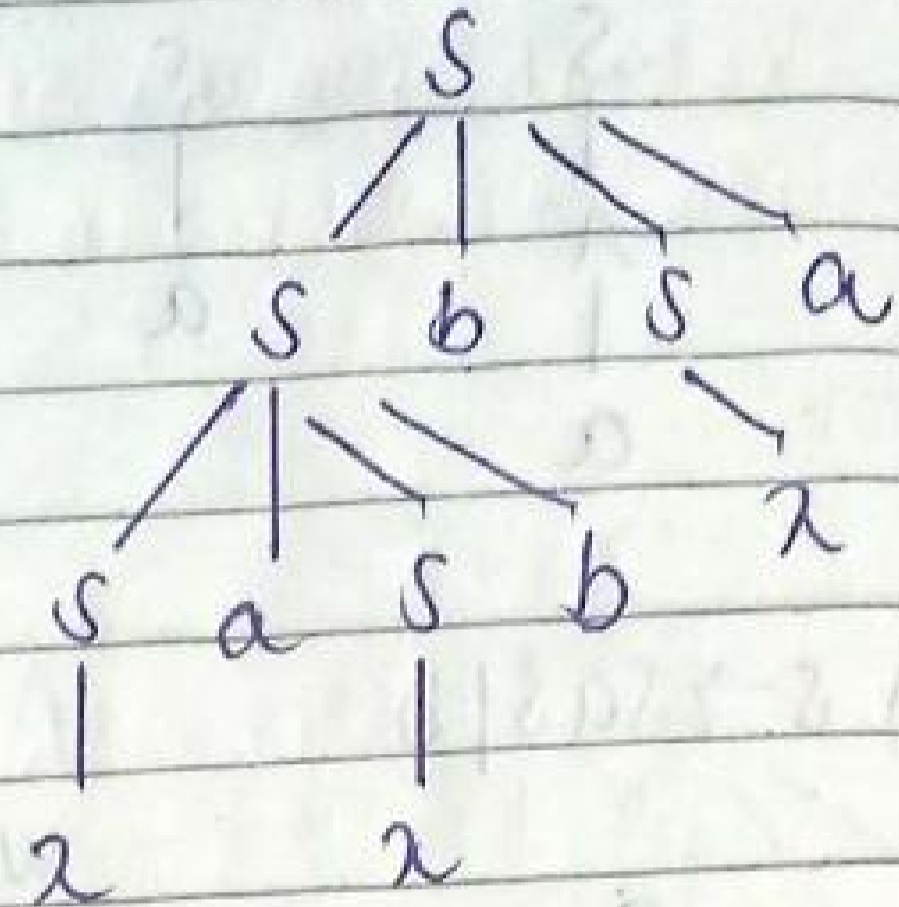 S
S b S a
S a S b λ
λ λ